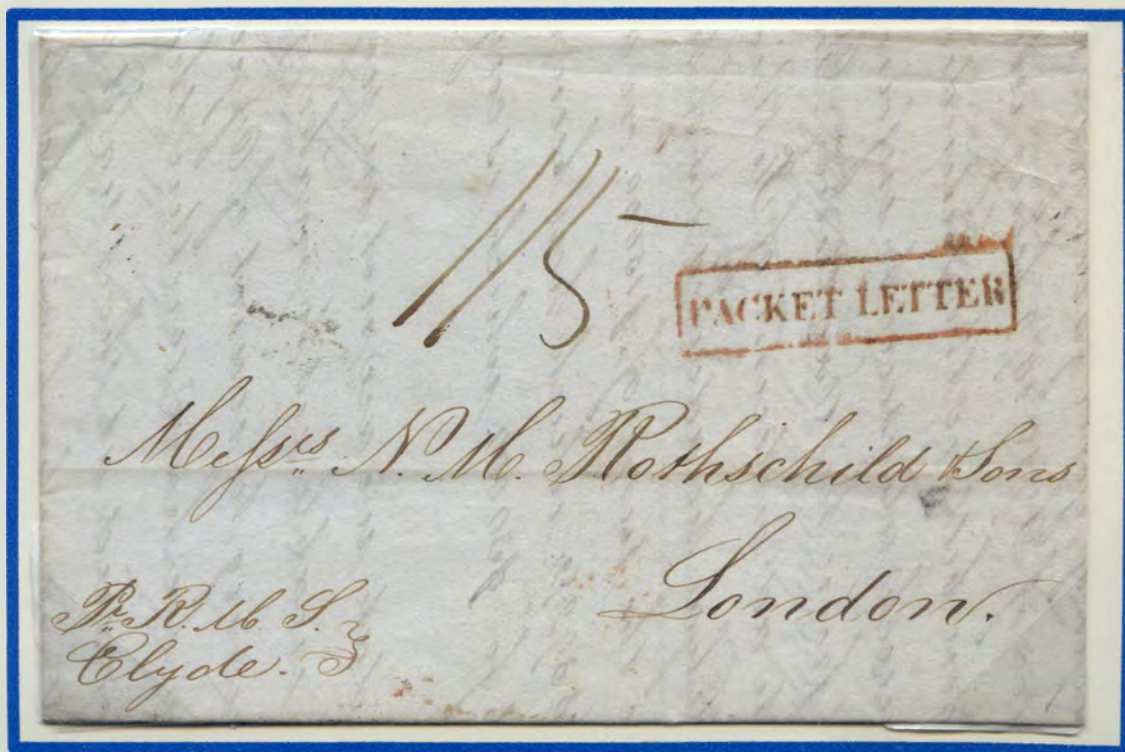 1/15
PACKET LETTER
Messrs N. M. Rothschild & Sons
London.
Pr R. M. S.
Clyde.